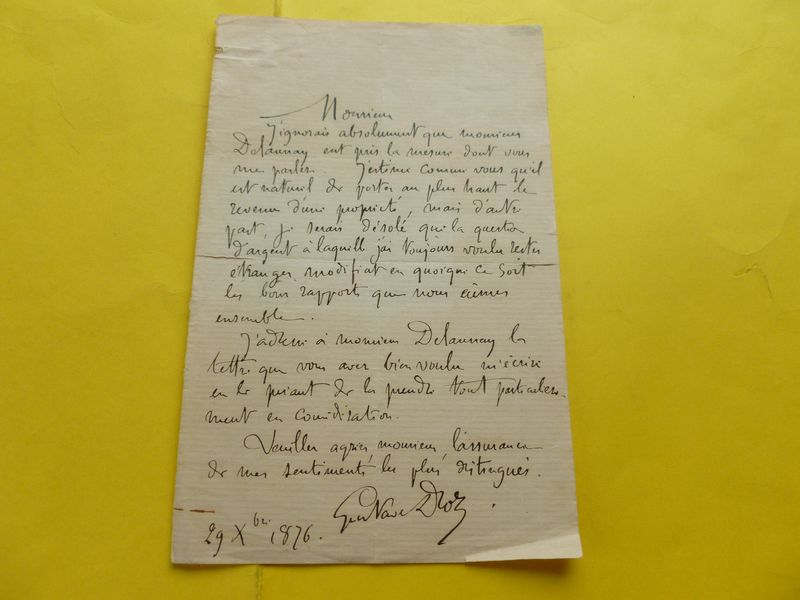 Monsieur
J'ignorais absolument que monsieur
Delaunay eut pris la mesure dont vous
me parlez. J'estime comme vous qu'il
est naturel de porter au plus haut le
revenu d'une propriété, mais d'autre
part, je serais désolé que la question
d'argent à laquelle j'ai toujours voulu rester
étranger modifiat en quoique ce soit
les bons rapports que nous eûmes
ensemble.
J'adresse à monsieur Delaunay la
lettre que vous avez bien voulu m'écrire
en le priant de la prendre tout particulière-
ment en considération.
Veuillez agréer, monsieur, l'assurance
de mes sentiments les plus distingués.
Gustave Droz.
29 Xbre 1876.